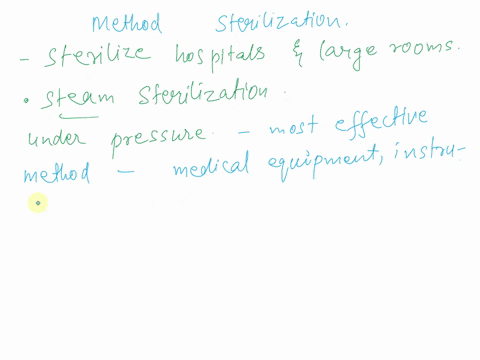 Method Sterilization.
- sterilize hospitals & large rooms.
• steam sterilization.
under pressure. - most effective
method - medical equipment, instru-
•